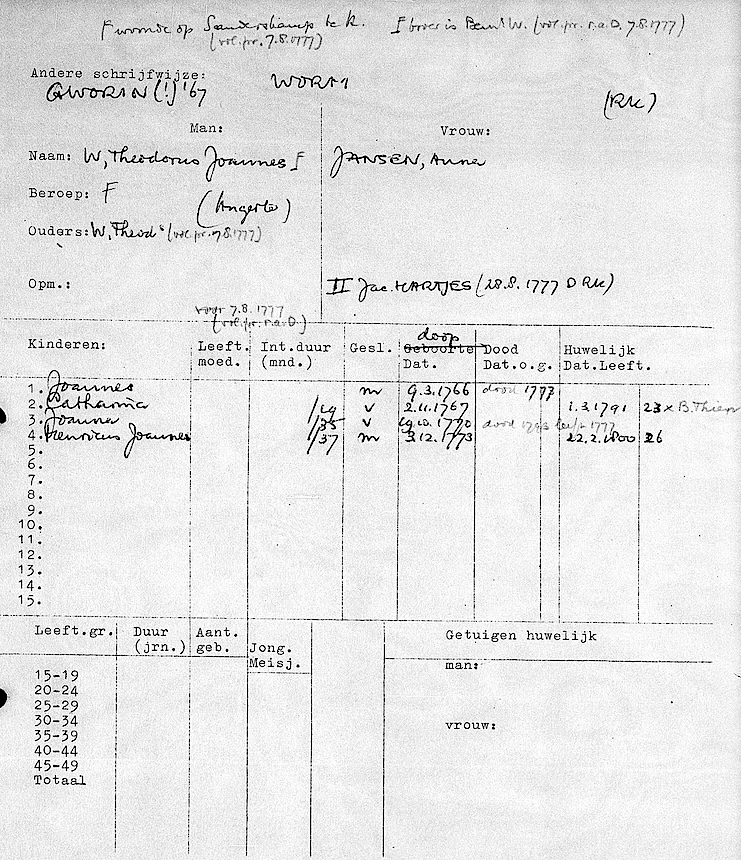 F woonde op Sanderskamp te K. F broer is Bern! W. (vol. pr. r.a.D. 7.8.1777)
(vol. pr. 7.8.1777)
Andere schrijfwijze: WORM
QWORIN (!) '67
(RK)
Man: Vrouw:
Naam: W, Theodorus Joannes F JANSEN, Anna
Beroep: F
(Angerlo)
Ouders: W, Theod. (vol. pr. 7.8.1777)
Opm.: II Jac. HARTJES (28.8.1777 D RK)
voor 7.8.1777
(vol. pr. r.a.D.)
doop
Kinderen: Leeft. moed. Int.duur (mnd.) Gesl. Geboorte Dat. Dood Dat.o.g. Huwelijk Dat.Leeft.
1. Joannes m 9.3.1766 dood 1777
2. Catharina /19 v 2.11.1767 1.3.1791 23 x B. Thien
3. Joanna /35 v 19.10.1770 dood
4. Henricus Joannes /37 m 3.12.1773 22.2.1800 26
5.
6.
7.
8.
9.
10.
11.
12.
13.
14.
15.
Leeft.gr. Duur (jrn.) Aant. geb. Jong. Meisj. Getuigen huwelijk
man:
15-19
20-24
25-29
30-34
vrouw:
35-39
40-44
45-49
Totaal